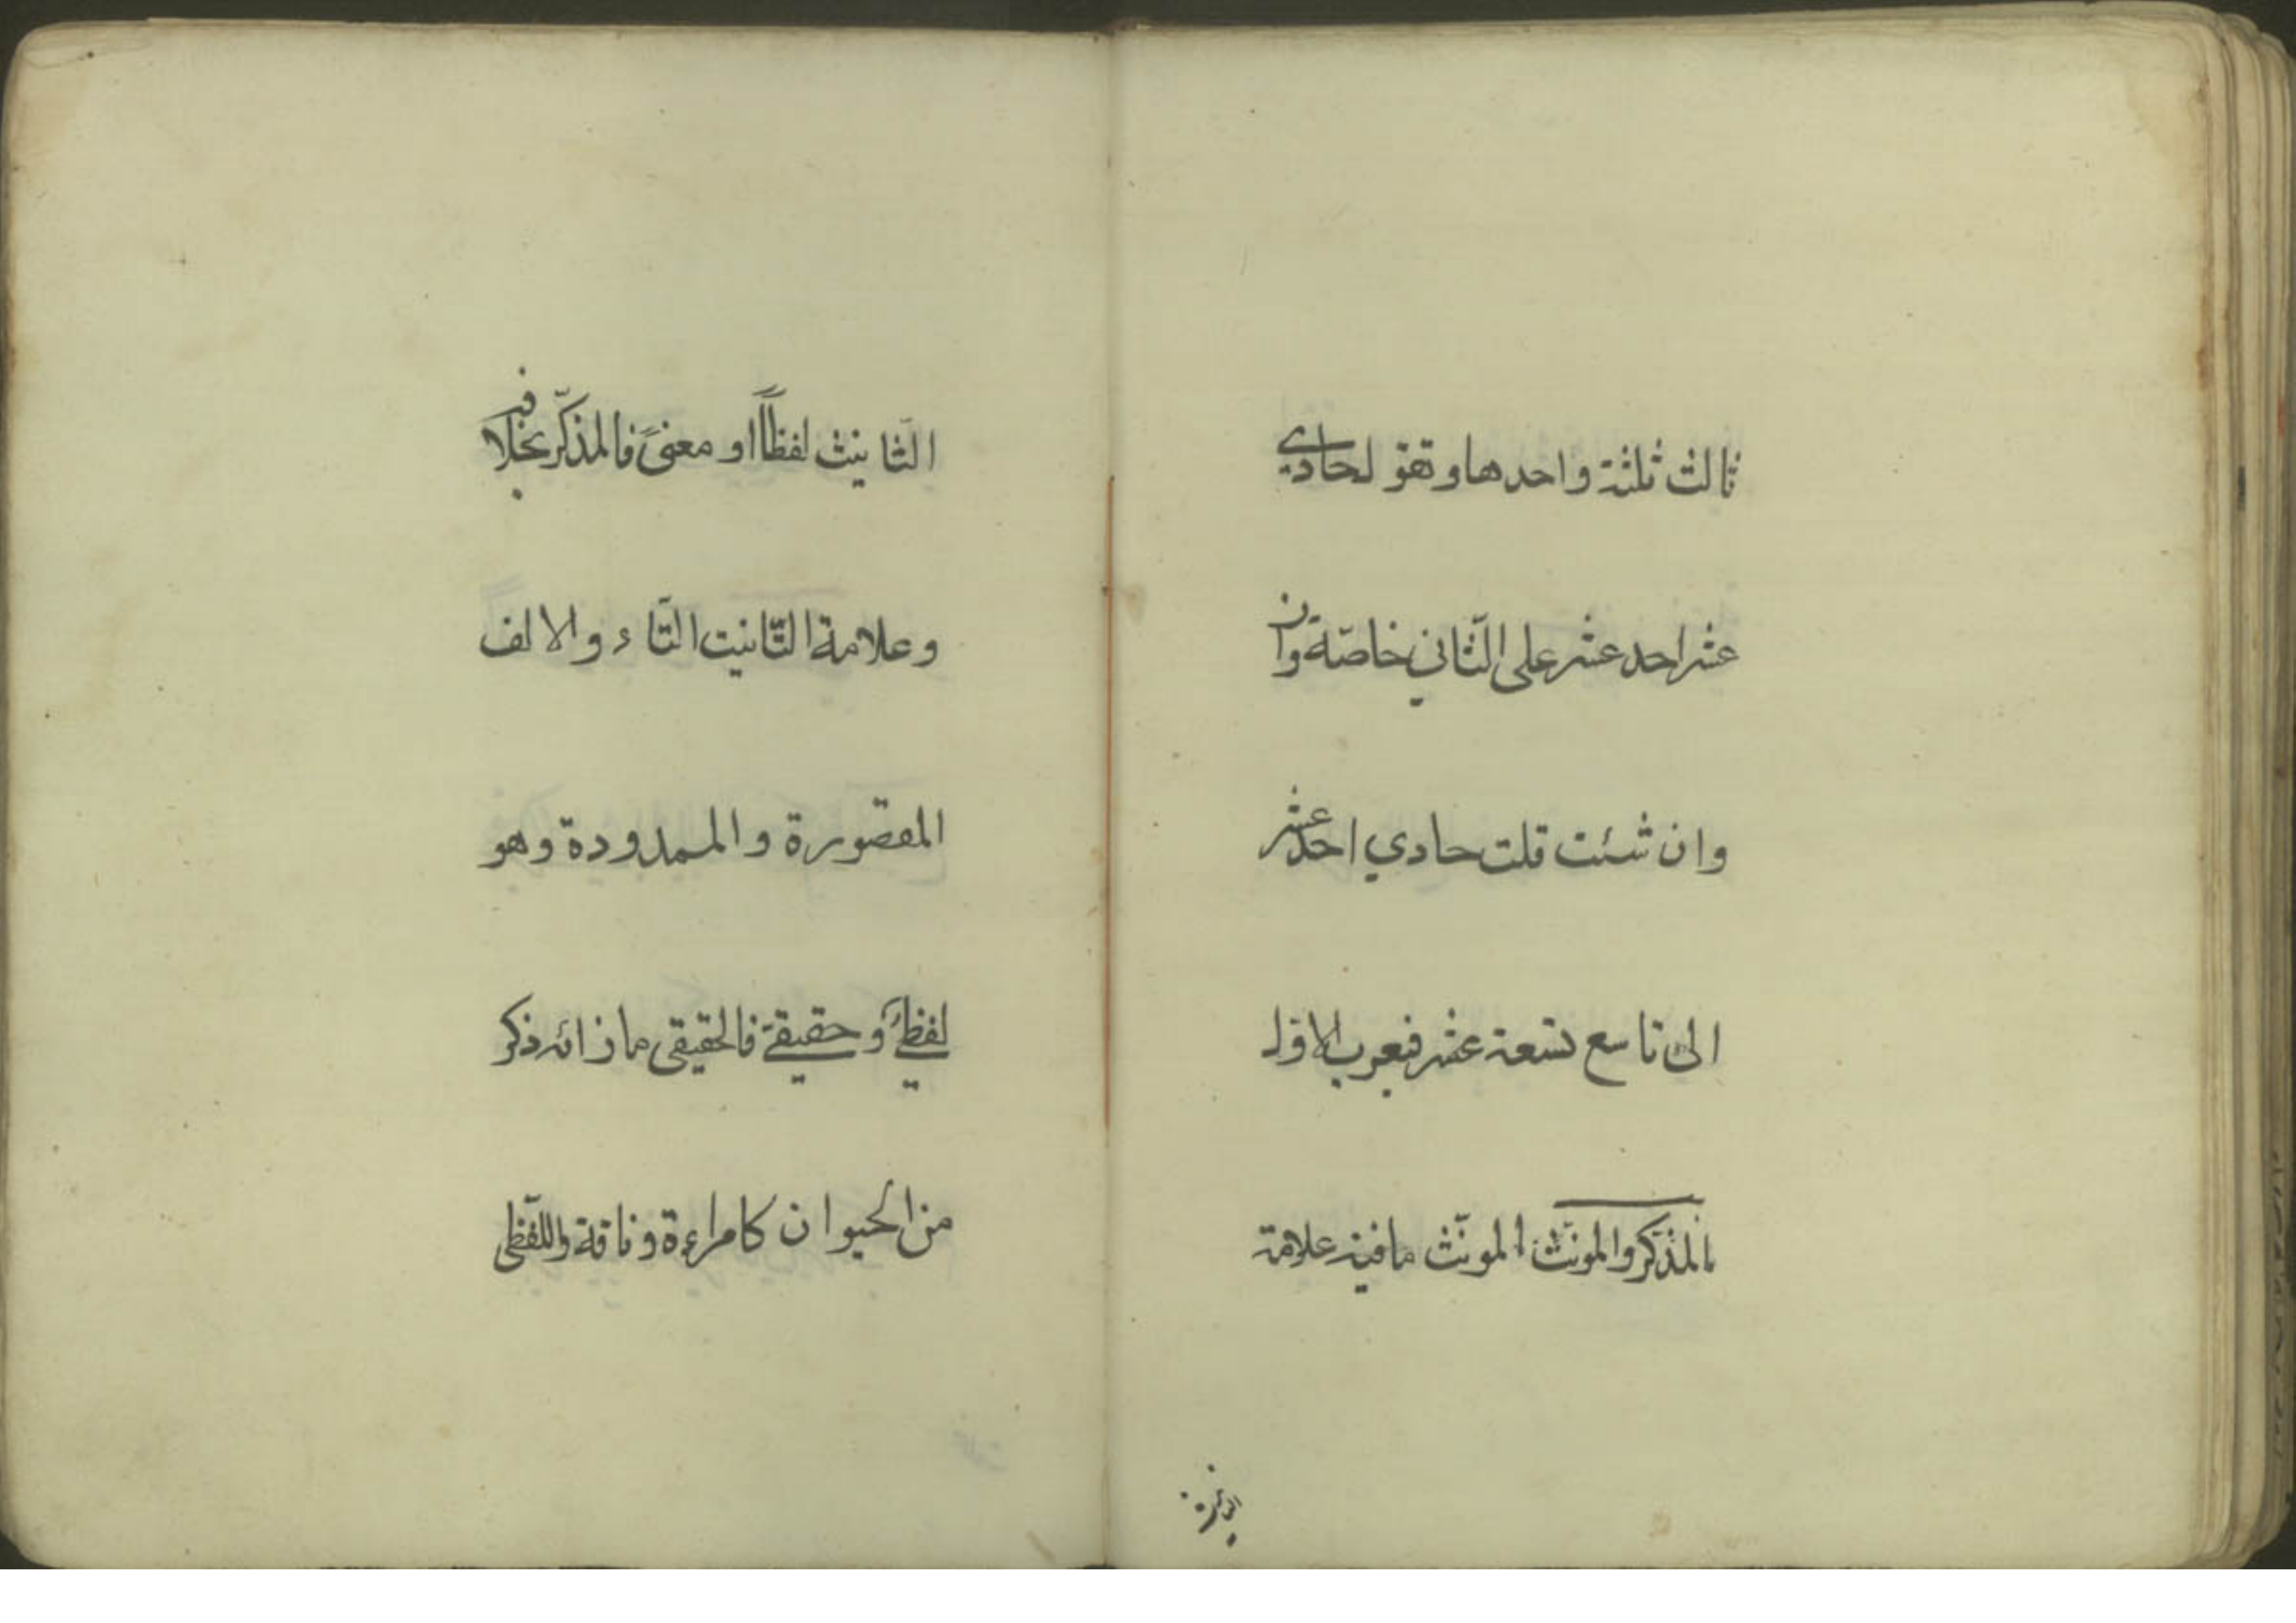 ثالث ثلثة واحدها وتقول حادي
عشر احد عشر على الثّاني خاصّة وان
وان شئت قلت حادي احد عشر
الى تاسع تسعة عشر فيعرب الاول
المذكّر والمونّث المونّث ما فيه علامة
التانيث
التّانيث لفظاً او معنىً فالمذكّر بخلافه
وعلامة التّانيت التّاء والالف
المقصورة والممدودة وهو
لفظيّ وحقيقيّ فالحقيقى ما زائه ذكر
من الحيوان كامراءة وناقة واللّفظى